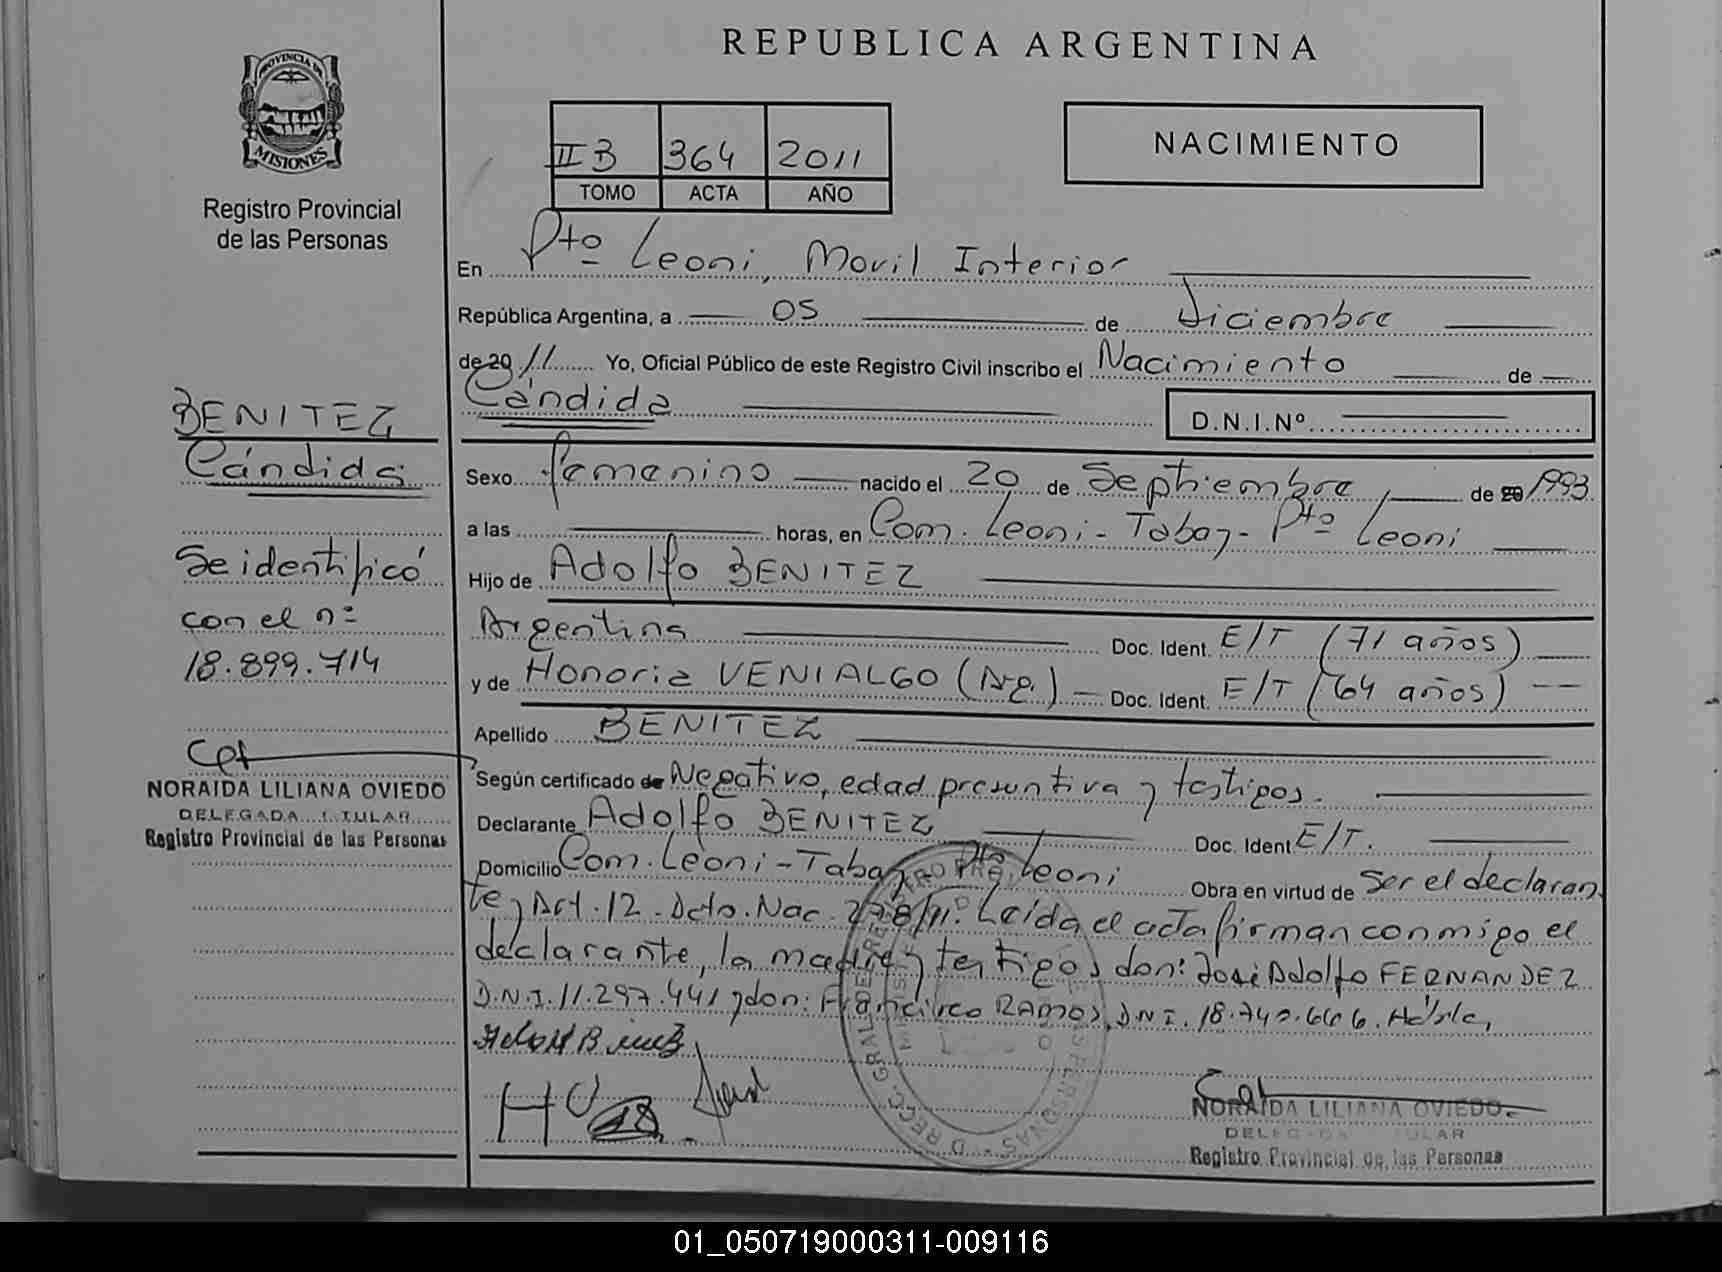 REPUBLICA ARGENTINA
PROVINCIA DE
MISIONES
Registro Provincial
de las Personas
II B 364 2011
TOMO ACTA AÑO
NACIMIENTO
En Pto Leoni, Movil Interior
República Argentina, a 05 de Diciembre
de 20 11 Yo, Oficial Público de este Registro Civil inscribo el Nacimiento de
Cándida
D.N.I.Nº
BENITEZ
Cándida
Se identificó
con el nº
18.899.714
NORAIDA LILIANA OVIEDO
DELEGADA TITULAR
Registro Provincial de las Personas
Sexo femenino nacido el 20 de Septiembre de 20 1993
a las horas, en Com. Leoni - Tabay - Pto Leoni
Hijo de Adolfo BENITEZ
Argentina Doc. Ident. E/T (71 años)
y de Honoria VENIALGO (Arg.) Doc. Ident. E/T (64 años)
Apellido BENITEZ
Según certificado de Negativo, edad presuntiva y testigos.
Declarante Adolfo BENITEZ Doc. Ident. E/T.
Domicilio Com. Leoni - Tabay - Pto Leoni Obra en virtud de Ser el declaran
te y Art. 12. Dcto. Nac. 278/11. Leída el acta firman conmigo el
declarante, la madre y testigos don: José Adolfo FERNANDEZ
D.N.I. 11.297.441 y don: Francisco RAMOS, D.N.I.
NORAIDA LILIANA OVIEDO
Registro Provincial de las Personas
01_050719000311-009116